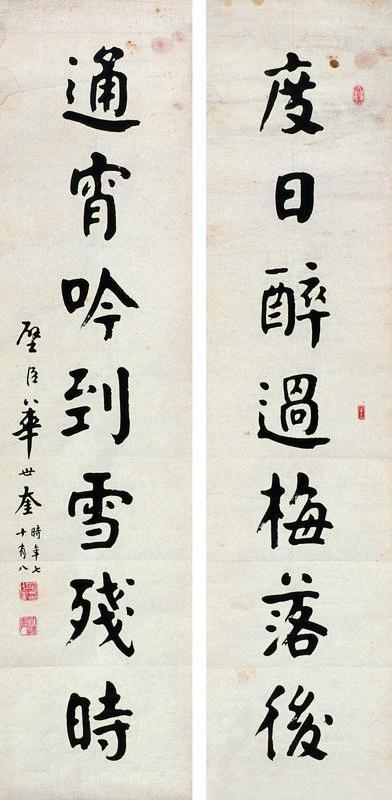 度日醉過梅落後
通宵吟到雪殘時
壁臣華世奎
時年七
十有八